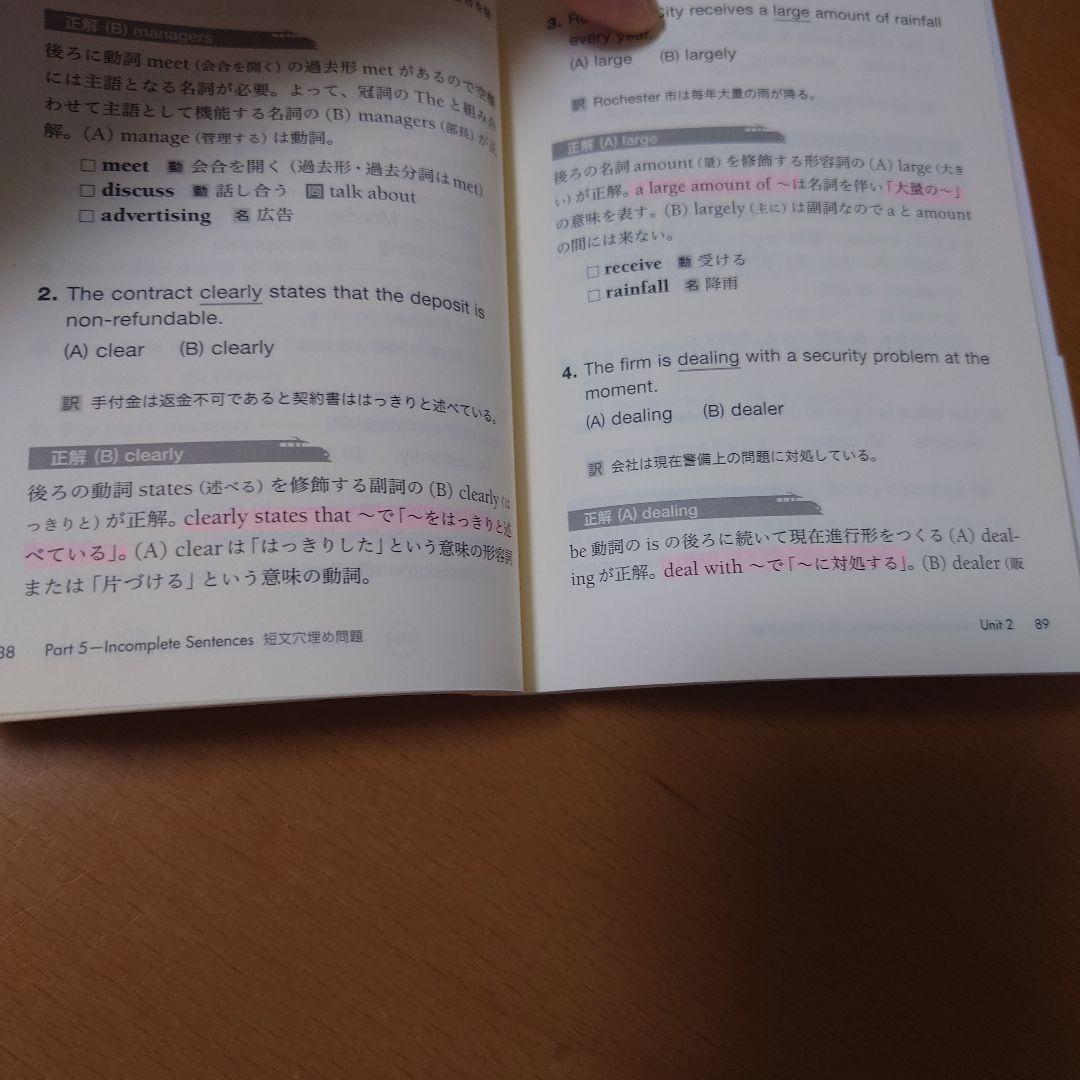 正解 (B) managers
後ろに動詞 meet (会合を開く) の過去形 met があるので空欄
には主語となる名詞が必要。よって、冠詞の The と組み合
わせて主語として機能する名詞の (B) managers (部長) が正
解。(A) manage (管理する) は動詞。
□ meet 動 会合を開く (過去形・過去分詞は met)
□ discuss 動 話し合う 同 talk about
□ advertising 名 広告
2. The contract clearly states that the deposit is
non-refundable.
(A) clear (B) clearly
訳 手付金は返金不可であると契約書ははっきりと述べている。
正解 (B) clearly
後ろの動詞 states (述べる) を修飾する副詞の (B) clearly (は
っきりと) が正解。clearly states that ～で「～をはっきりと述
べている」。(A) clear は「はっきりした」という意味の形容詞
または「片づける」という意味の動詞。
88 Part 5—Incomplete Sentences 短文穴埋め問題
3. City receives a large amount of rainfall
every year.
(A) large (B) largely
訳 Rochester 市は毎年大量の雨が降る。
正解 (A) large
後ろの名詞 amount (量) を修飾する形容詞の (A) large (大き
い) が正解。a large amount of ～は名詞を伴い「大量の～」
の意味を表す。(B) largely (主に) は副詞なので a と amount
の間には来ない。
□ receive 動 受ける
□ rainfall 名 降雨
4. The firm is dealing with a security problem at the
moment.
(A) dealing (B) dealer
訳 会社は現在警備上の問題に対処している。
正解 (A) dealing
be 動詞の is の後ろに続いて現在進行形をつくる (A) deal-
ing が正解。deal with ～で「～に対処する」。(B) dealer (販
Unit 2 89